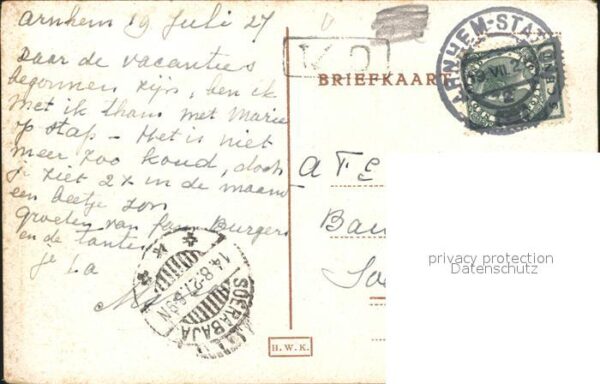 Arnhem 19 Juli 27
Daar de vacanties
begonnen zijn, ben ik
met ik thans met Marie
op stap – Het is niet
meer zoo koud, doch
je ziet 2x in de maand
een beetje zon
groeten van fam Burgers
en de tantes
je La
V.D
BRIEFKAART
ARNHEM-STAT
19 VII 2
12
A F E
Bau
Soe
privacy protection
Datenschutz
14.8.27
SOERABAJA
H.W.K.